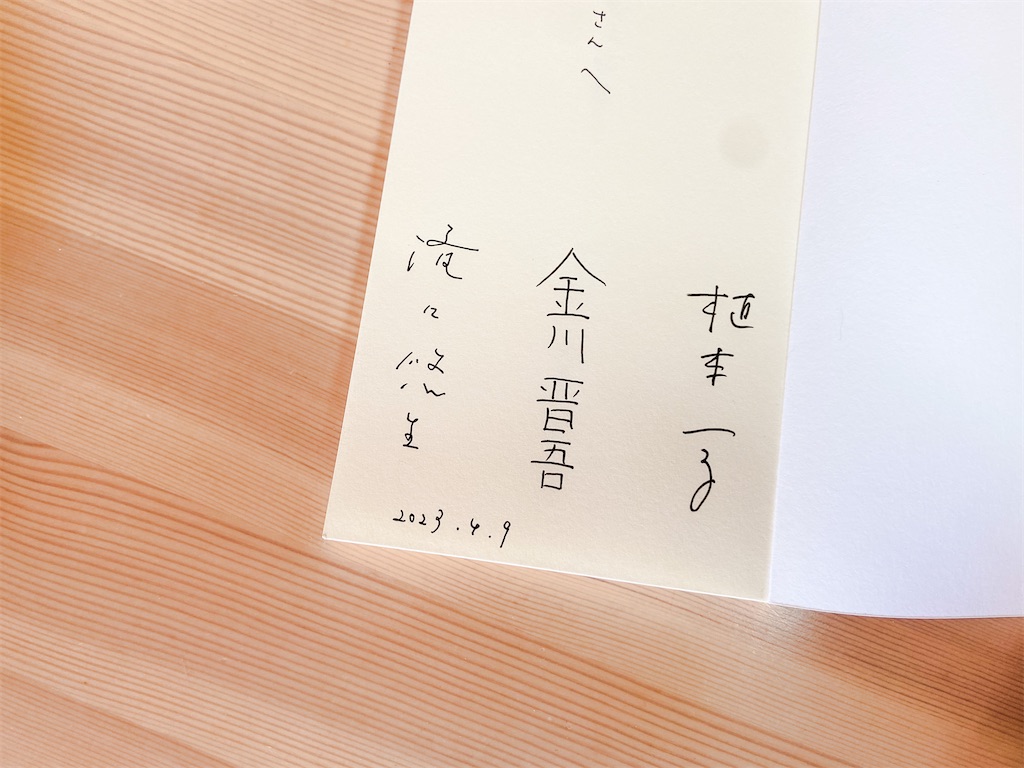 さんへ
植本一子
金川晋吾
滝口悠生
2023.4.9